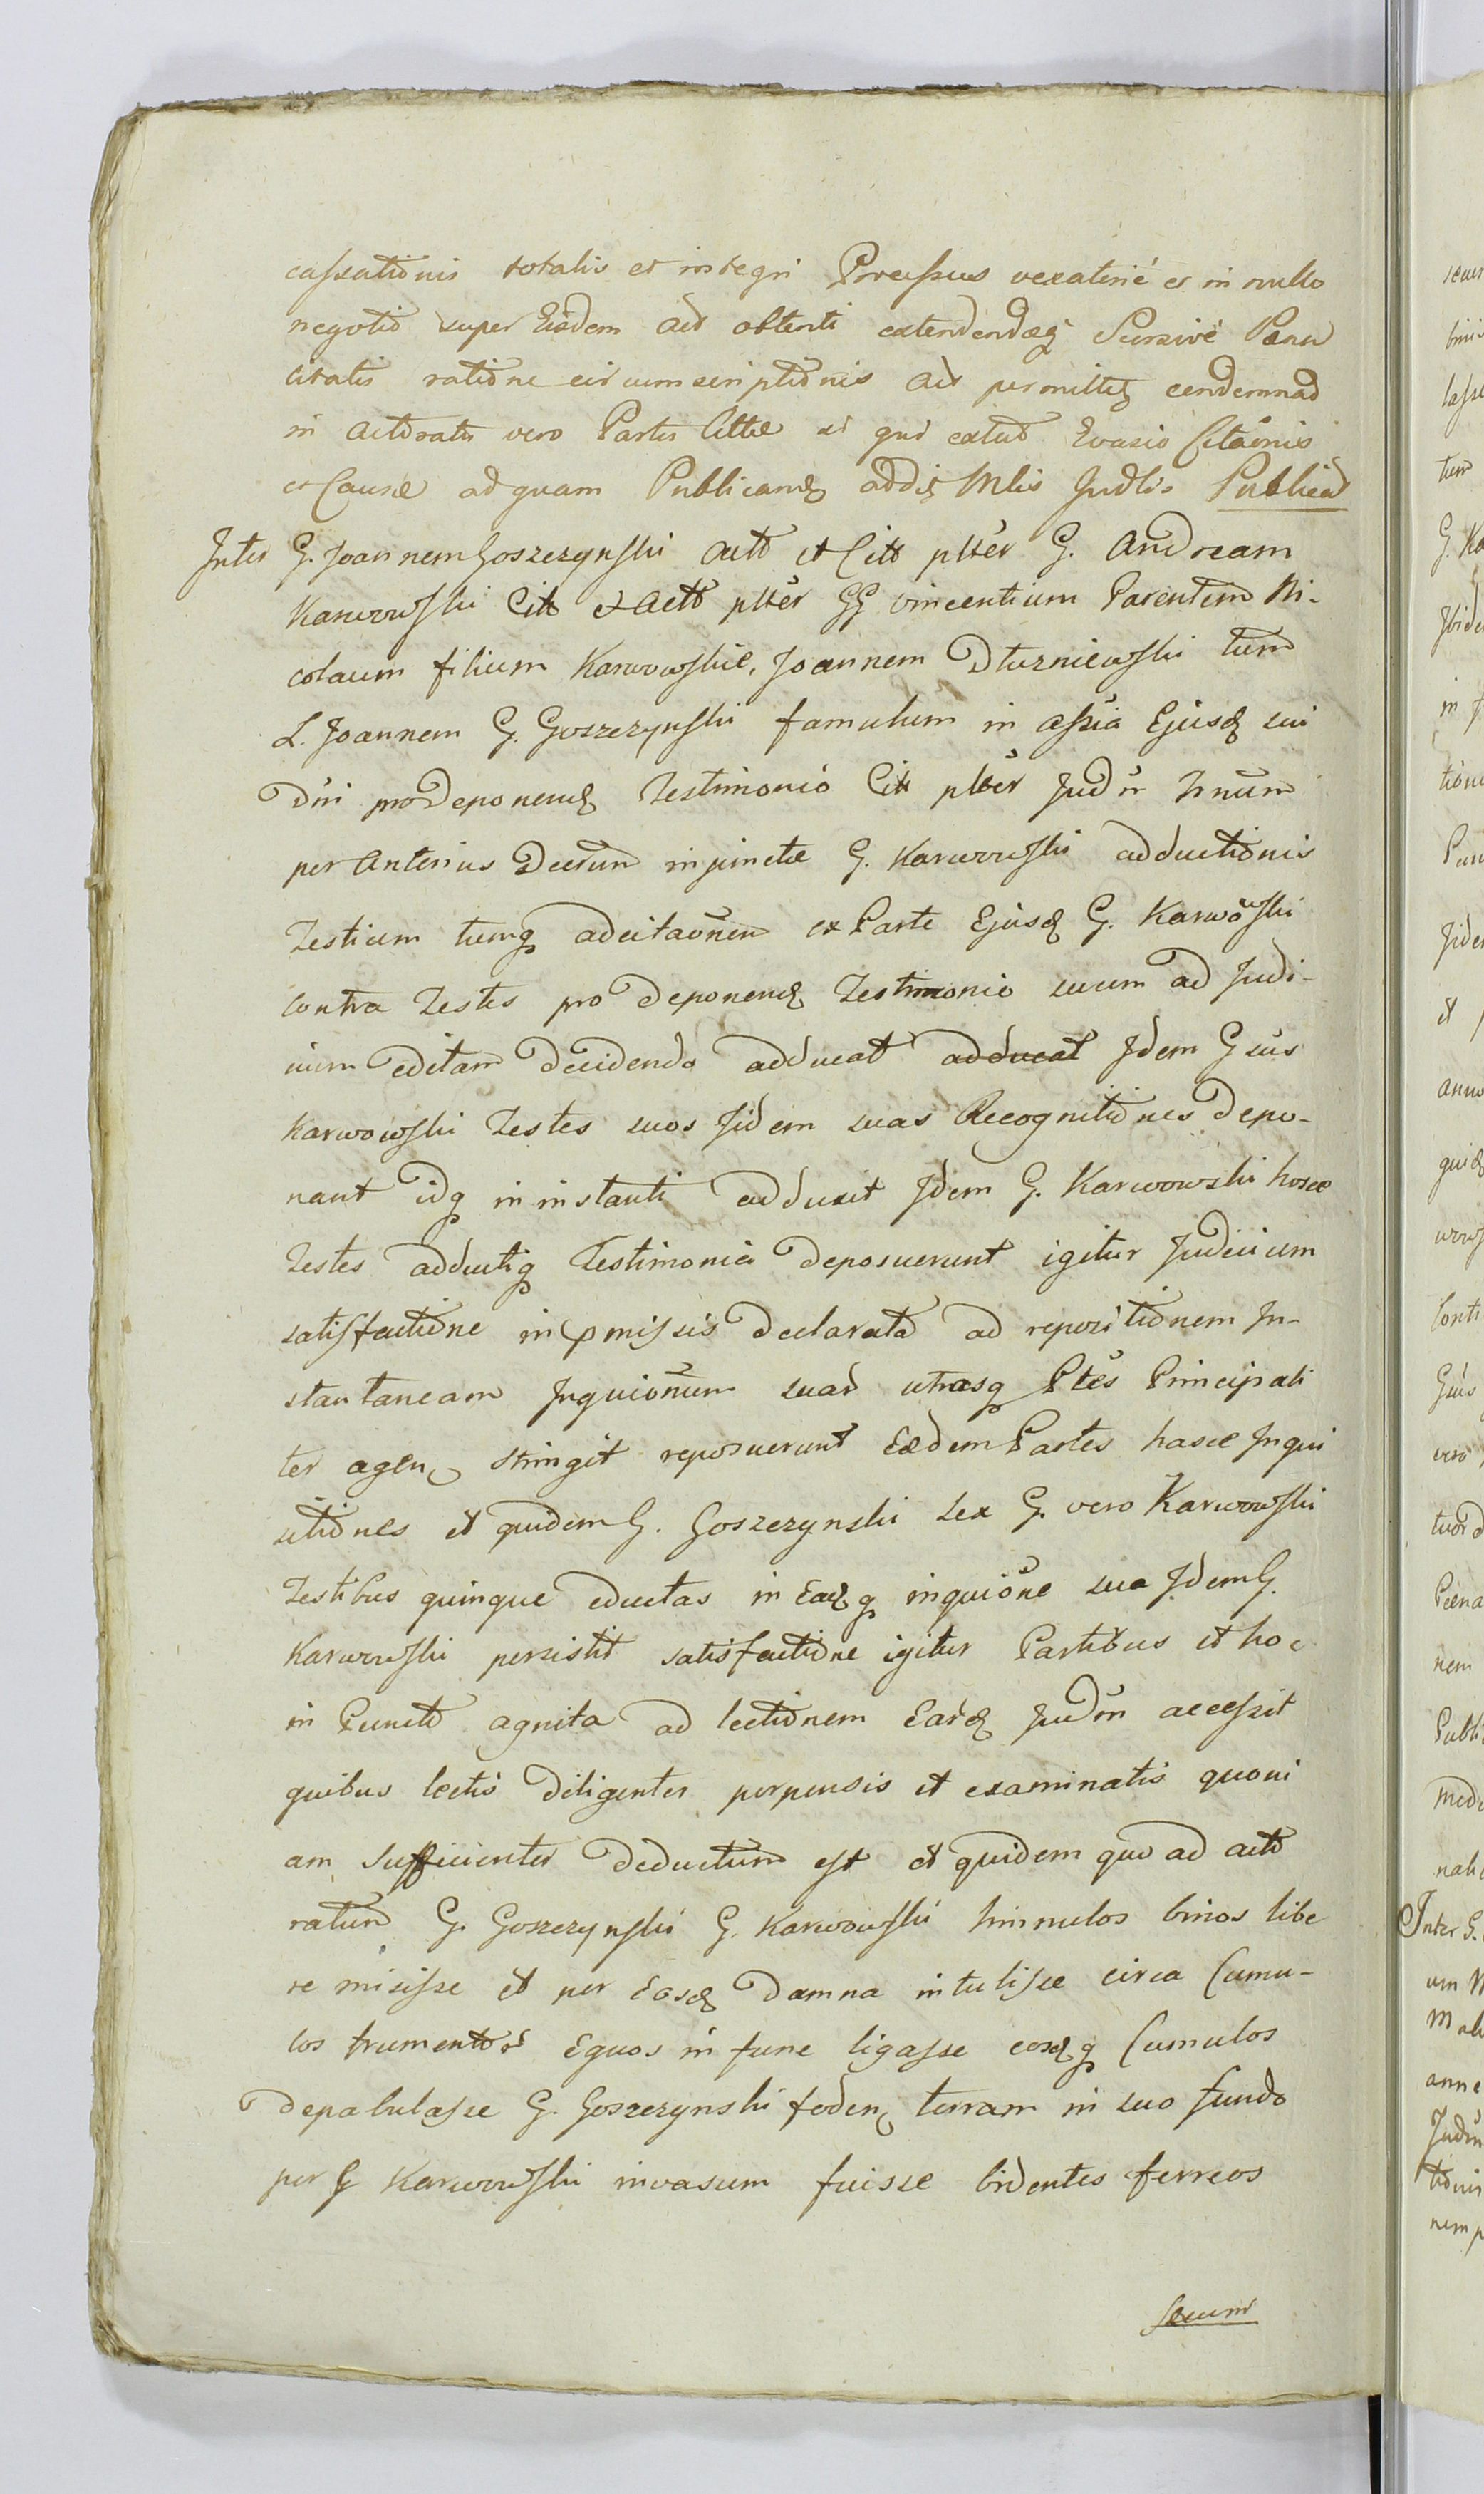 cassationis totalis et integri Processus vexatorié et in nullo
negotio super Eisdem Act obtenti extendendæq Cursivé Pænu
litatis ratione circumscriptionis Act permittę condemnad
in Actoratu vero Partis Cittæ si qui extat Evasio Citaōnis
et Causæ ad quam Publicanđ addię Mlis Judlis Publicat
Inter G. Joannem Goszczynski Actt et Citt plter G. Andream
Karwowski Citt et Actt plter GG Vincentium Parentem Ni-
colaum filium Karwowskie, Joannem Dturniewski tum
L. Joannem G. Goszczynski famulum in assia Ejusđ sui
Dni pro deponenđ Testimonio Citt plter Judm Trnum
per Anterius Decrum injunctæ G. Karwowski adductionis
Testium tumq adcitaonem ex Parte Ejusđ G. Karwowski
contra Testes pro deponenđ Testimonio suum ad Judi-
cium editam decidendo adducat adducat Idem Gsus
Karwowski Testes suos Iidem suas Recognitiones depo-
nant idq in instanti adduxit Idem G. Karwowski hosce
Testes adductiq Testimonia deposuerunt igitur Judicium
satisfactione in pmissis declarata ad repositionem In-
stantaneam Inquionum suar utrasq Ptes Principali
ter agen stringit reposuerunt Eædem Partes hasce Inqui
sitiones et quidem G. Goszczynski sex G. vero Karwowski
Testibus quinque eductas in Eađq inquione sua Idem G.
Karwowski persistit satisfactione igitur Partibus et hoc
in Puncto agnita ad lectionem Earđ Judm accessit
quibus lectis diligenter perpensis et examinatis quoni
am sufficienter deductum est et quidem quo ad acto
ratum G. Goszczynski G. Karwowski hinnulos binos libe
re misisse et per Eosđ damna intulisse circa Cumu-
los frumentor Equos in fune ligasse eosđq Cumulos
depabulasse G. Goszczynski foden terram in suo fundo
per G Karwowski invasum fuisse bidentes ferreos
secum